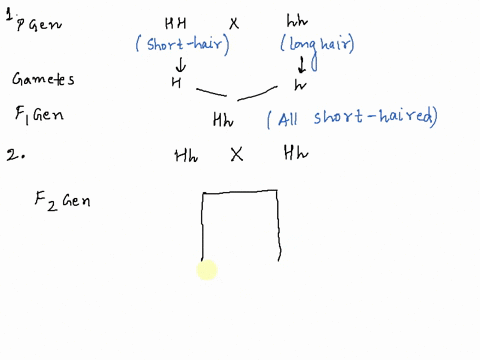 1. P Gen HH X hh
(Short-hair) (long hair)
Gametes H h
F1 Gen Hh (All short-haired)
2. Hh X Hh
F2 Gen